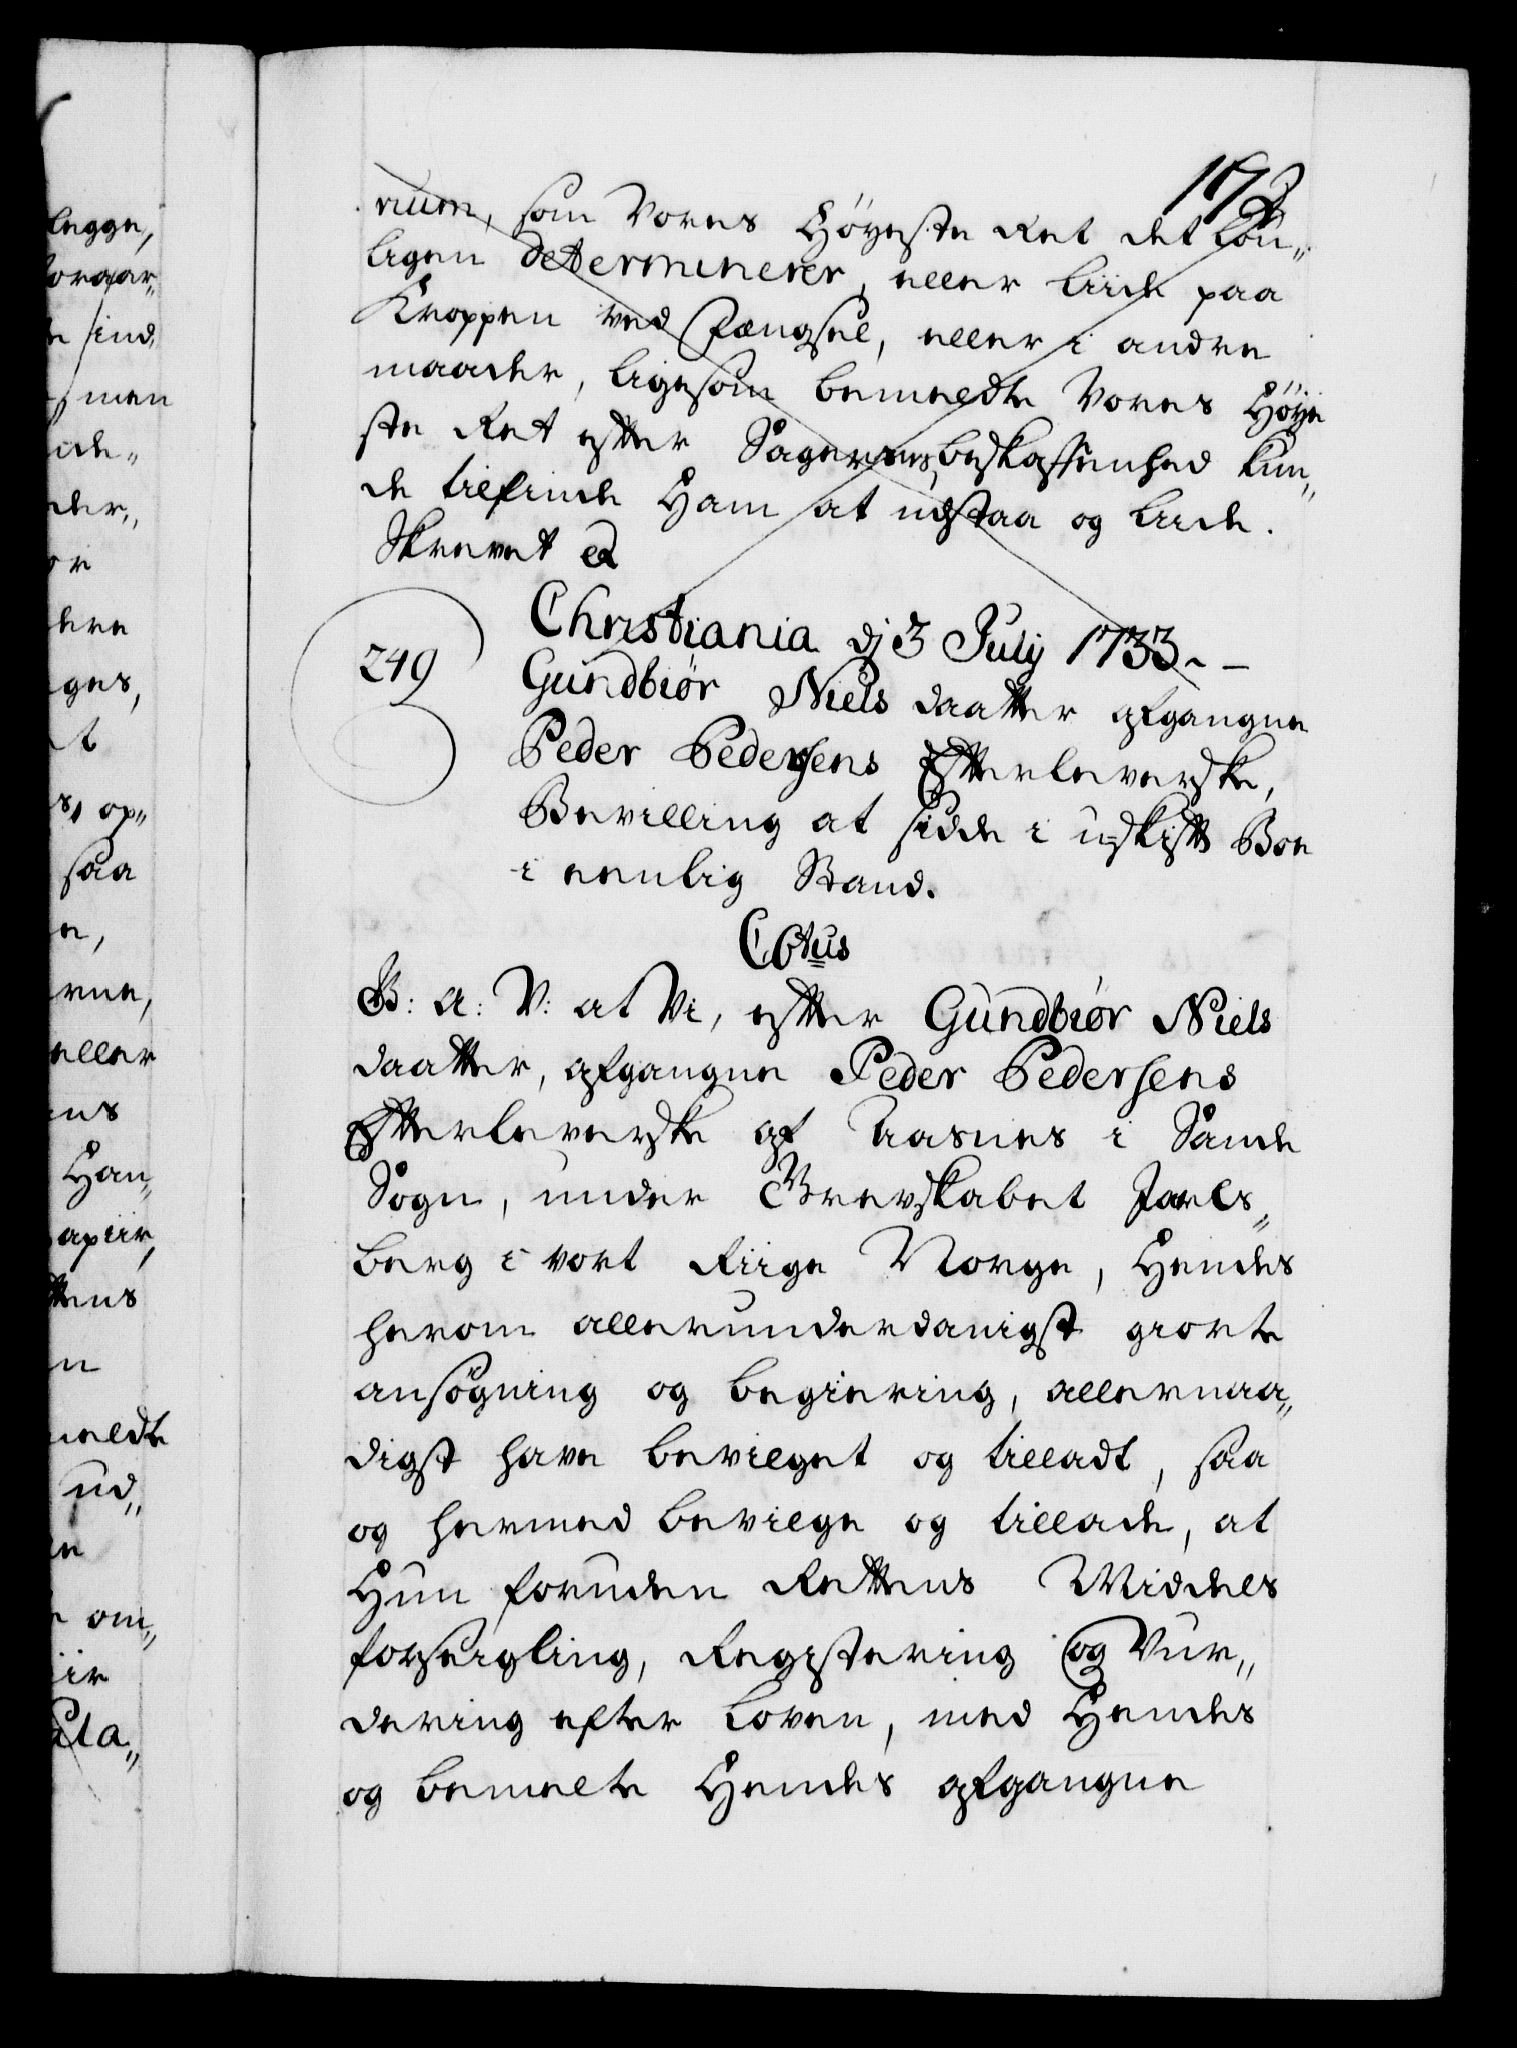 rium, som Vores Høyeste Ret det Lou„
ligen determinerer, eller liide paa
Kroppen ved Fængsel, eller i andre
maader, ligesom bemeldte Vores Høye
ste Ret efter Sagernes beskaffenhed kun„
de tilfinde Ham at udstaa og liide.
Skrevet
Christiania dj 3 Julij 1733. –
249
Gundbiør Niels daatter afgangne
Peder Pedersens Efterleverske,
Bevilling at sidde i uskifft Boe
i eenlig Stand.
C6tus
G: a: V: at Vi, efter Gundbiør Niels
daatter, afgangne Peder Pedersens
Efterleverske af Aasnes i Sande
Sogn, under Grevskabet Jarls„
berg i vort Riige Norge, Hendes
herom allerunderdanigst giorte
ansøgning og begiering, allernaa„
digst have bevilget og tilladt, saa
og hermed bevilge og tillade, at
Hun foruden Rettens Middels
forseigling, Registering og Vur„
dering efter Loven, med Hendes
og bemelte Hendes afgangne
legge,
ind„
men
ide„
der„
dere
ges,
op„
saa
eller
Han„
apiir,
ttens
meldte
ud„
om„